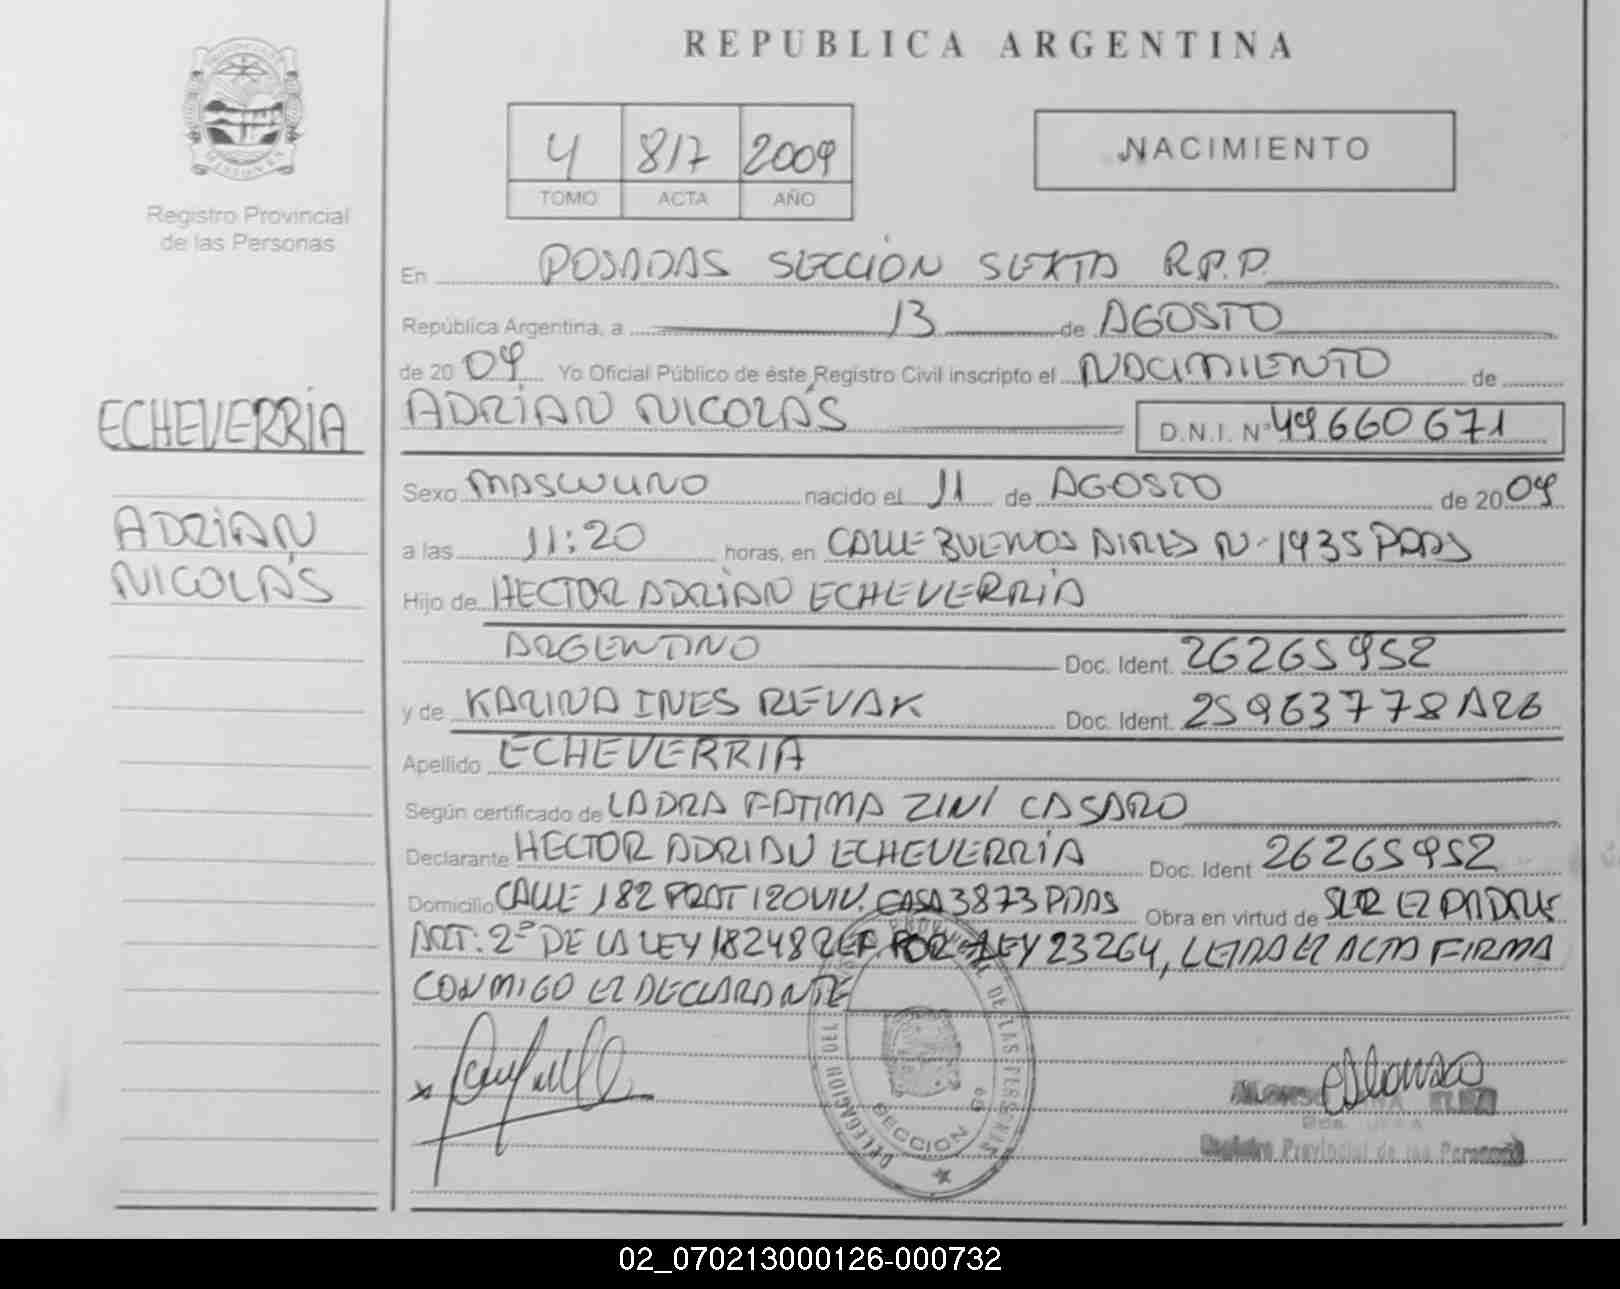 REPUBLICA ARGENTINA
4 817 2009
TOMO ACTA AÑO
NACIMIENTO
Registro Provincial
de las Personas
ECHEVERRÍA
ADRIAN
NICOLÁS
En POSADAS SECCIÓN SEXTA R.P.P.
República Argentina, a 13 de AGOSTO
de 2009 Yo Oficial Público de éste Registro Civil inscripto el NACIMIENTO de
ADRIAN NICOLÁS D.N.I. Nº 49660671
Sexo MASCULINO nacido el 11 de AGOSTO de 2009
a las 11:20 horas, en CALLE BUENOS AIRES N- 1435 PDAS
Hijo de HECTOR ADRIAN ECHEVERRÍA
ARGENTINO Doc. Ident. 26265952
y de KARINA INES REVAK Doc. Ident. 25963778 ARG
Apellido ECHEVERRIA
Según certificado de LAURA FATIMA ZINI CASARO
Declarante HECTOR ADRIAN ECHEVERRÍA Doc. Ident 26265952
Domicilio CALLE 182 PROT 120 VIV. CASA 3873 PDAS Obra en virtud de SER EL PADRE
ART. 2º DE LA LEY 18248 REF. POR LEY 23264, LEIDA EL ACTA FIRMA
CONMIGO EL DECLARANTE
DELEGACION DEL REGISTRO PROVINCIAL DE LAS PERSONAS
SECCION 6ª
Registro Provincial de las Personas
02_070213000126-000732